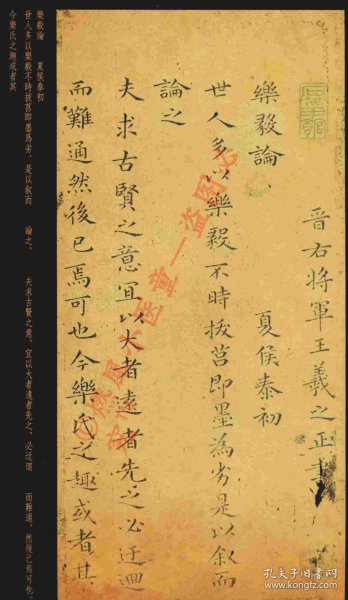 晉右將軍王羲之正書
樂毅論 夏侯泰初
世人多以樂毅不時拔莒即墨為劣是以叙而
論之
夫求古賢之意宜以大者遠者先之必迂迴
而難通然後已焉可也今樂氏之趣或者其
樂毅論 夏侯泰初
世人多以樂毅不時拔莒即墨爲劣，是以叙而 論之。 夫求古賢之意，宜以大者遠者先之，必迂迴 而難通，然後已焉可也，
今樂氏之趣或者其
盗图必
孔夫子旧书网